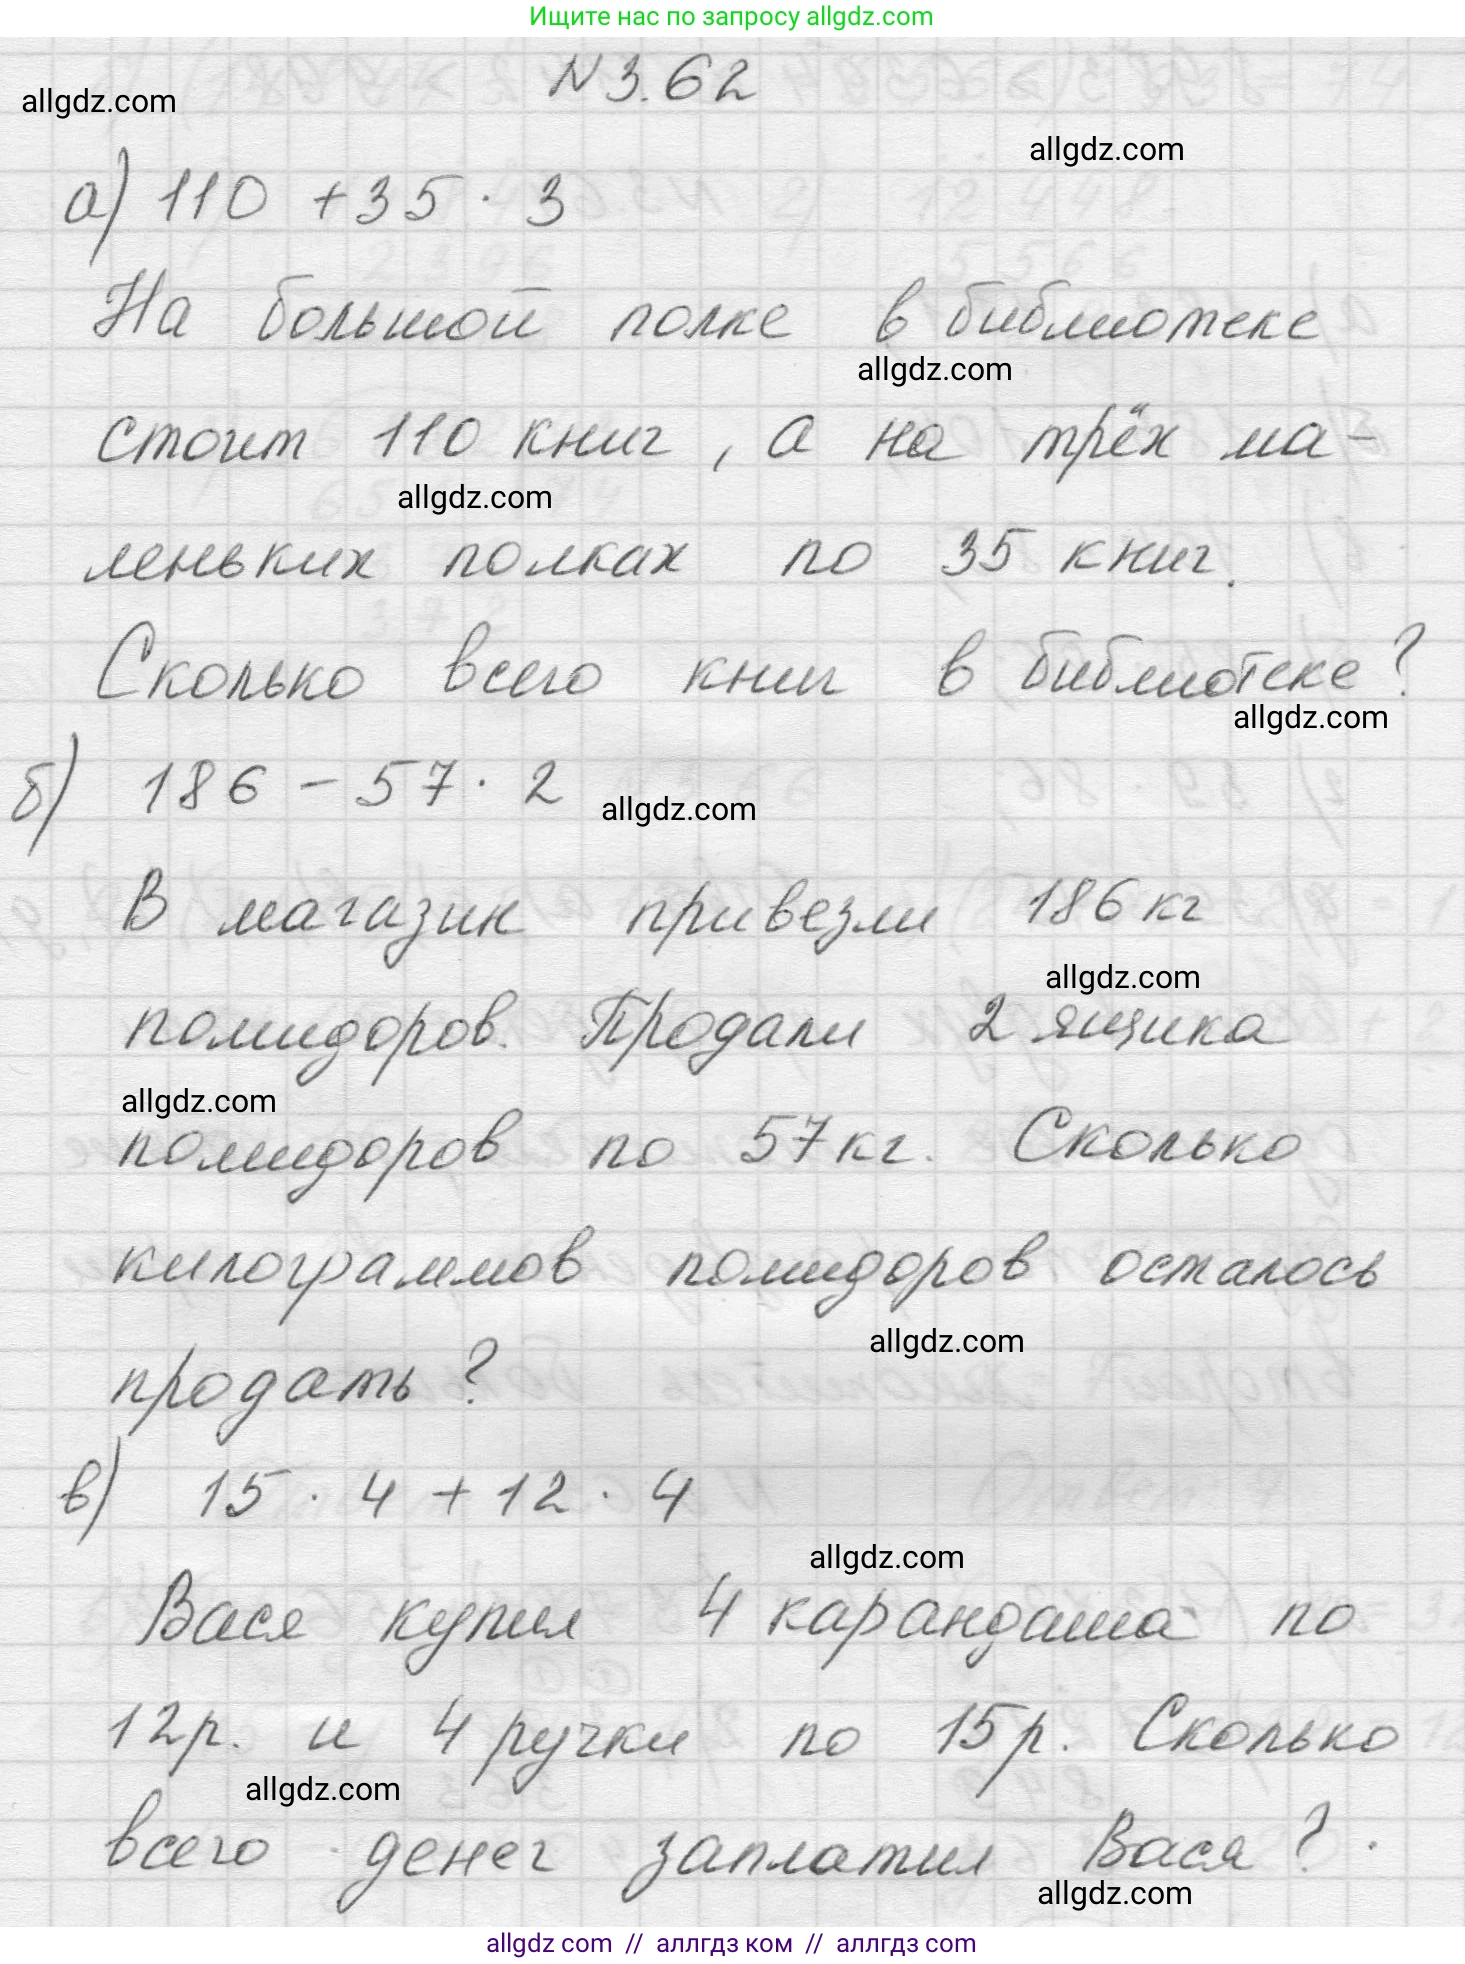 Ищите нас по запросу allgdz.com
N 3.62
allgdz.com
allgdz.com
а) 110 + 35 · 3
На большой полке в библиотеке
allgdz.com
стоит 110 книг, а на трёх ма-
allgdz.com
леньких полках по 35 книг.
Сколько всего книг в библиотеке?
allgdz.com
б) 186 - 57 · 2
allgdz.com
В магазин привезли 186 кг
allgdz.com
помидоров. Продали 2 ящика
allgdz.com
помидоров по 57 кг. Сколько
килограммов помидоров осталось
allgdz.com
продать?
в) 15 · 4 + 12 · 4
allgdz.com
Вася купил 4 карандаша по
12р. и 4 ручки по 15р. Сколько
allgdz.com
всего денег заплатил Вася?
allgdz.com
allgdz com // аллгдз ком // allgdz com